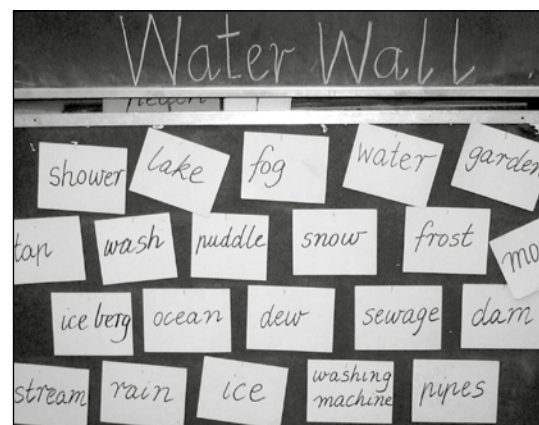 Water Wall
shower lake fog water garden
tap wash puddle snow frost
ice berg ocean dew sewage dam
stream rain ice washing machine pipes